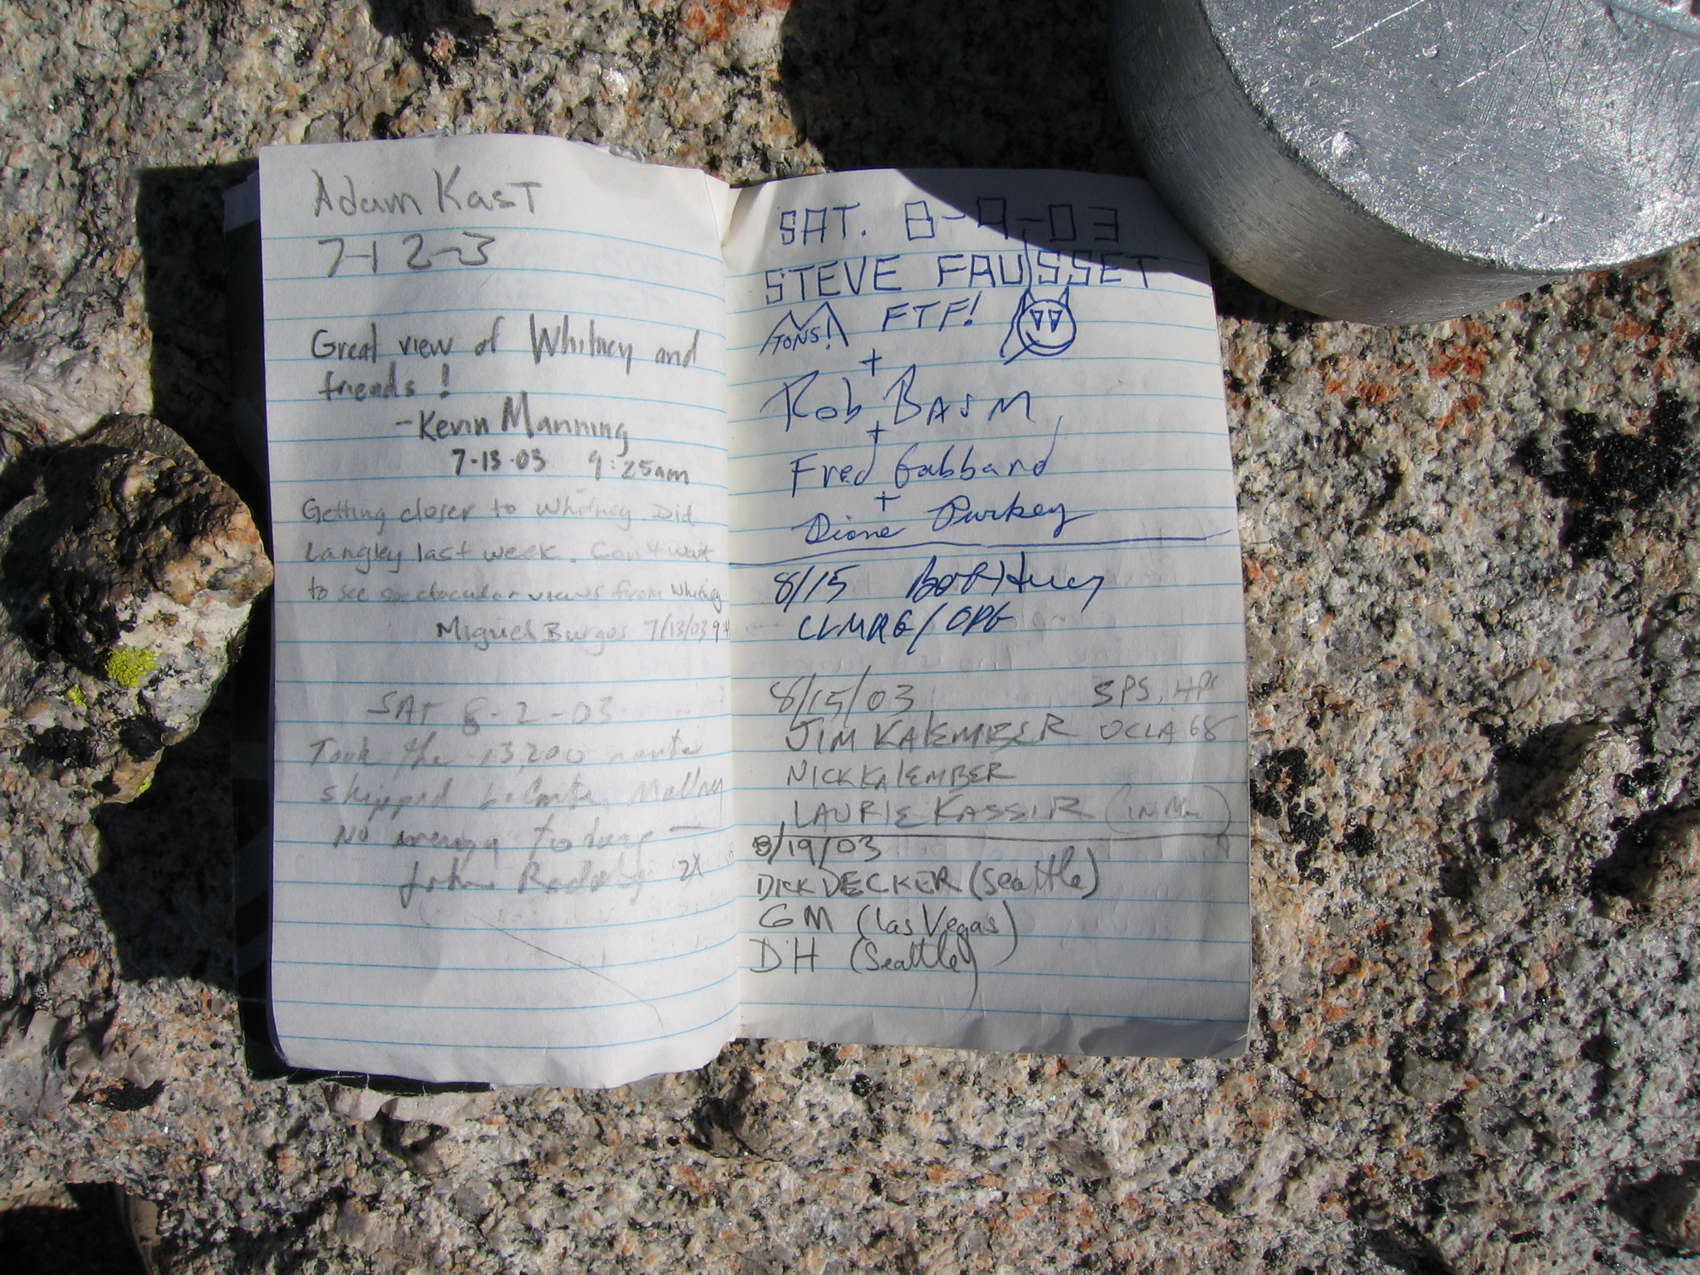 Adam Kast
7-12-3
Great view of Whitney and
friends!
-Kevin Manning
7-13-03 9:25am
Getting closer to Whitney Did
Langley last week. Can't wait
to see spectacular views from Whitney
Miguel Burgos 7/13/03
SAT 8-2-03
Took the 13,200
skipped
No
John 2X
SAT. 8-9-03
STEVE FAUSSET
TONS! FTF!
+
Rob
+
Fred Gabbard
+
Diane Purkey
8/15
8/15/03 SPS, HPS
JIM KALEMBER UCLA 68
NICK KALEMBER
LAURIE KASSIR
8/19/03
DICK DECKER (Seattle)
GM (Las Vegas)
DH (Seattle)